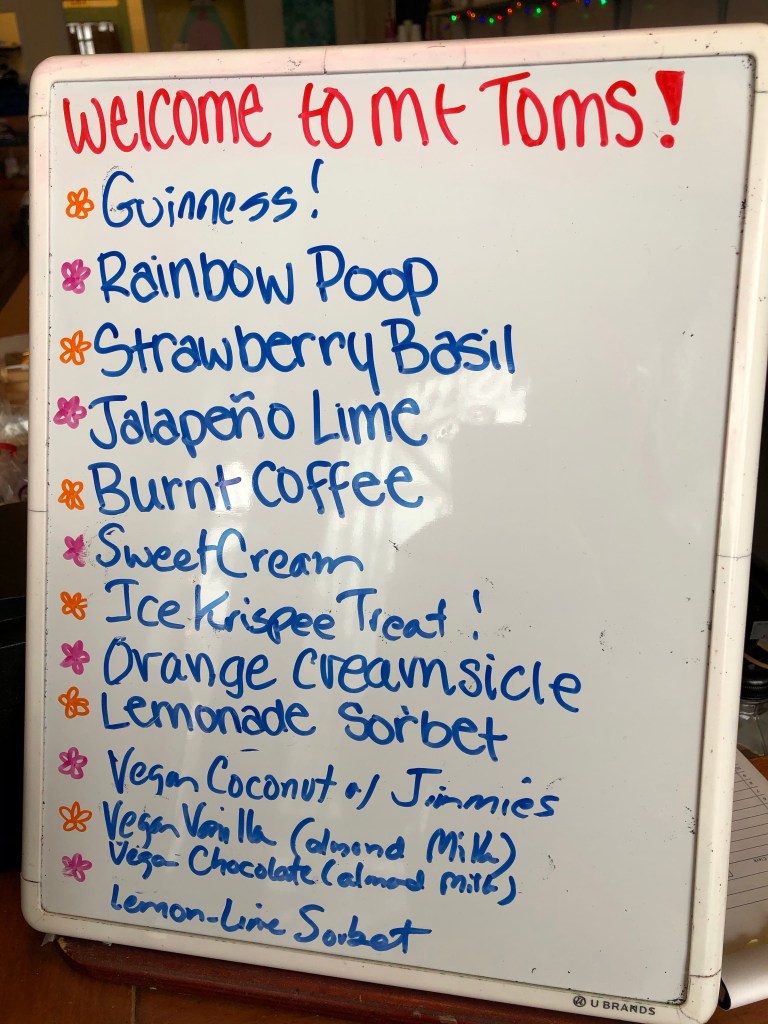 Welcome to mt Toms!
Guinness!
Rainbow Poop
Strawberry Basil
Jalapeño Lime
Burnt Coffee
Sweet Cream
Ice Krispee Treat!
Orange Creamsicle
Lemonade Sorbet
Vegan Coconut w/ Jimmies
Vegan Vanilla (almond Milk)
Vegan Chocolate (almond Milk)
Lemon-Lime Sorbet
U BRANDS